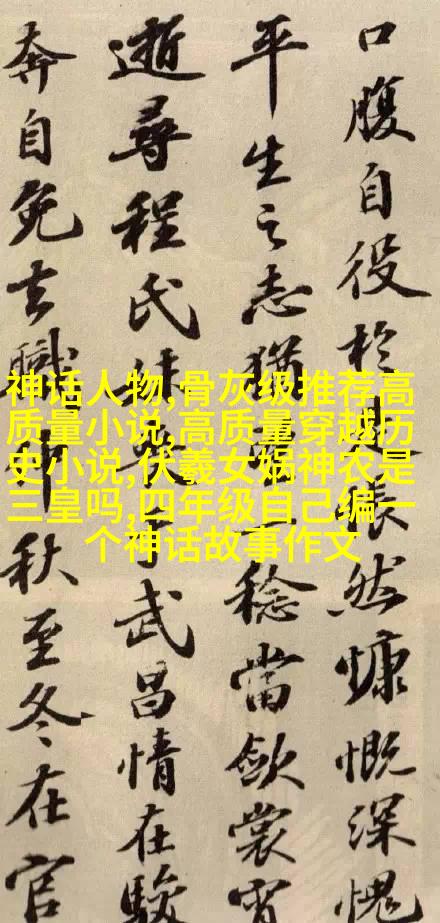 口腹自役於悵然慷慨深愧
平生之志猶一稔當斂裳宵
逝尋程氏妹于武昌情在駿
奔自免去職秋至冬在官
神话人物,骨灰级推荐高
质量小说,高质量穿越历
史小说,伏羲女娲神农是
三皇吗,四年级自己编一
个神话故事作文